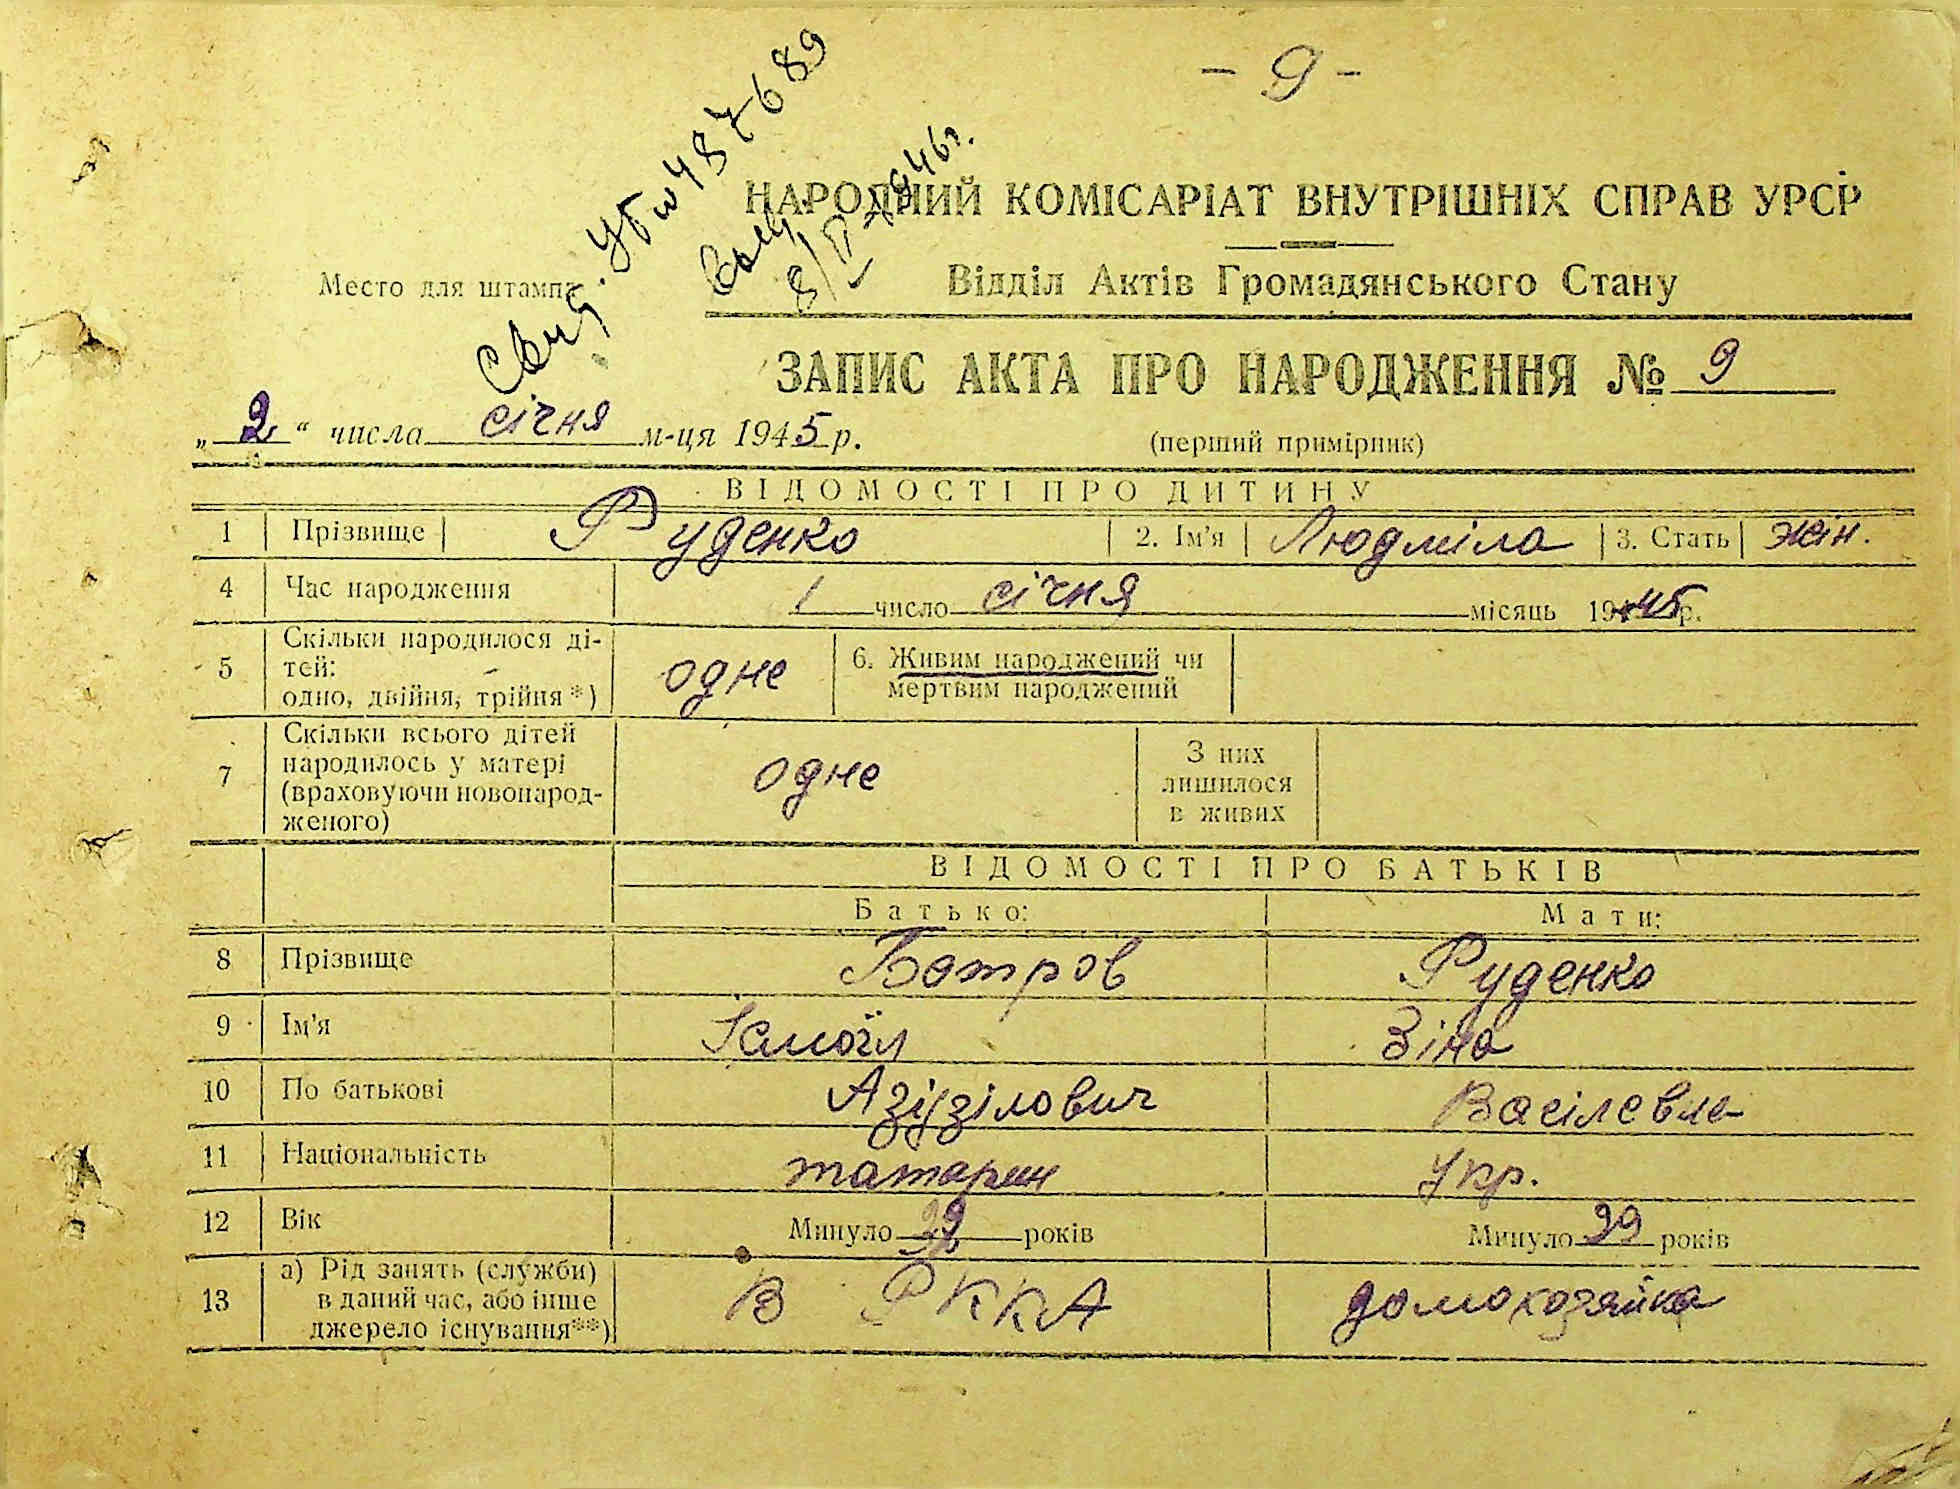 - 9 -
Свид. УБ № 487689
8/II-1946г.
НАРОДНИЙ КОМІСАРІАТ ВНУТРІШНІХ СПРАВ УРСР
Место для штампа
Відділ Актів Громадянського Стану
ЗАПИС АКТА ПРО НАРОДЖЕННЯ № 9
„2“ числа січня м-ця 1945 р.
(перший примірник)
ВІДОМОСТІ ПРО ДИТИНУ
1 Прізвище Руденко 2. Ім'я Людміла 3. Стать жін.
4 Час народження 1 число січня місяць 1945 р.
5 Скільки народилося ді-
тей:
одно, двійня, трійня *) одне
6. Живим народжений чи
мертвим народжений
7 Скільки всього дітей
народилось у матері
(враховуючи новонарод-
женого) одне
З них
лишилося
в живих
ВІДОМОСТІ ПРО БАТЬКІВ
Батько: Мати:
8 Прізвище Батров Руденко
9 Ім'я Ісмаїл Зіна
10 По батькові Азідзілович Васілевна
11 Національність татарин Укр.
12 Вік Минуло років Минуло років
13 а) Рід занять (служби)
в даний час, або інше
джерело існування**) В РККА домохозяйка